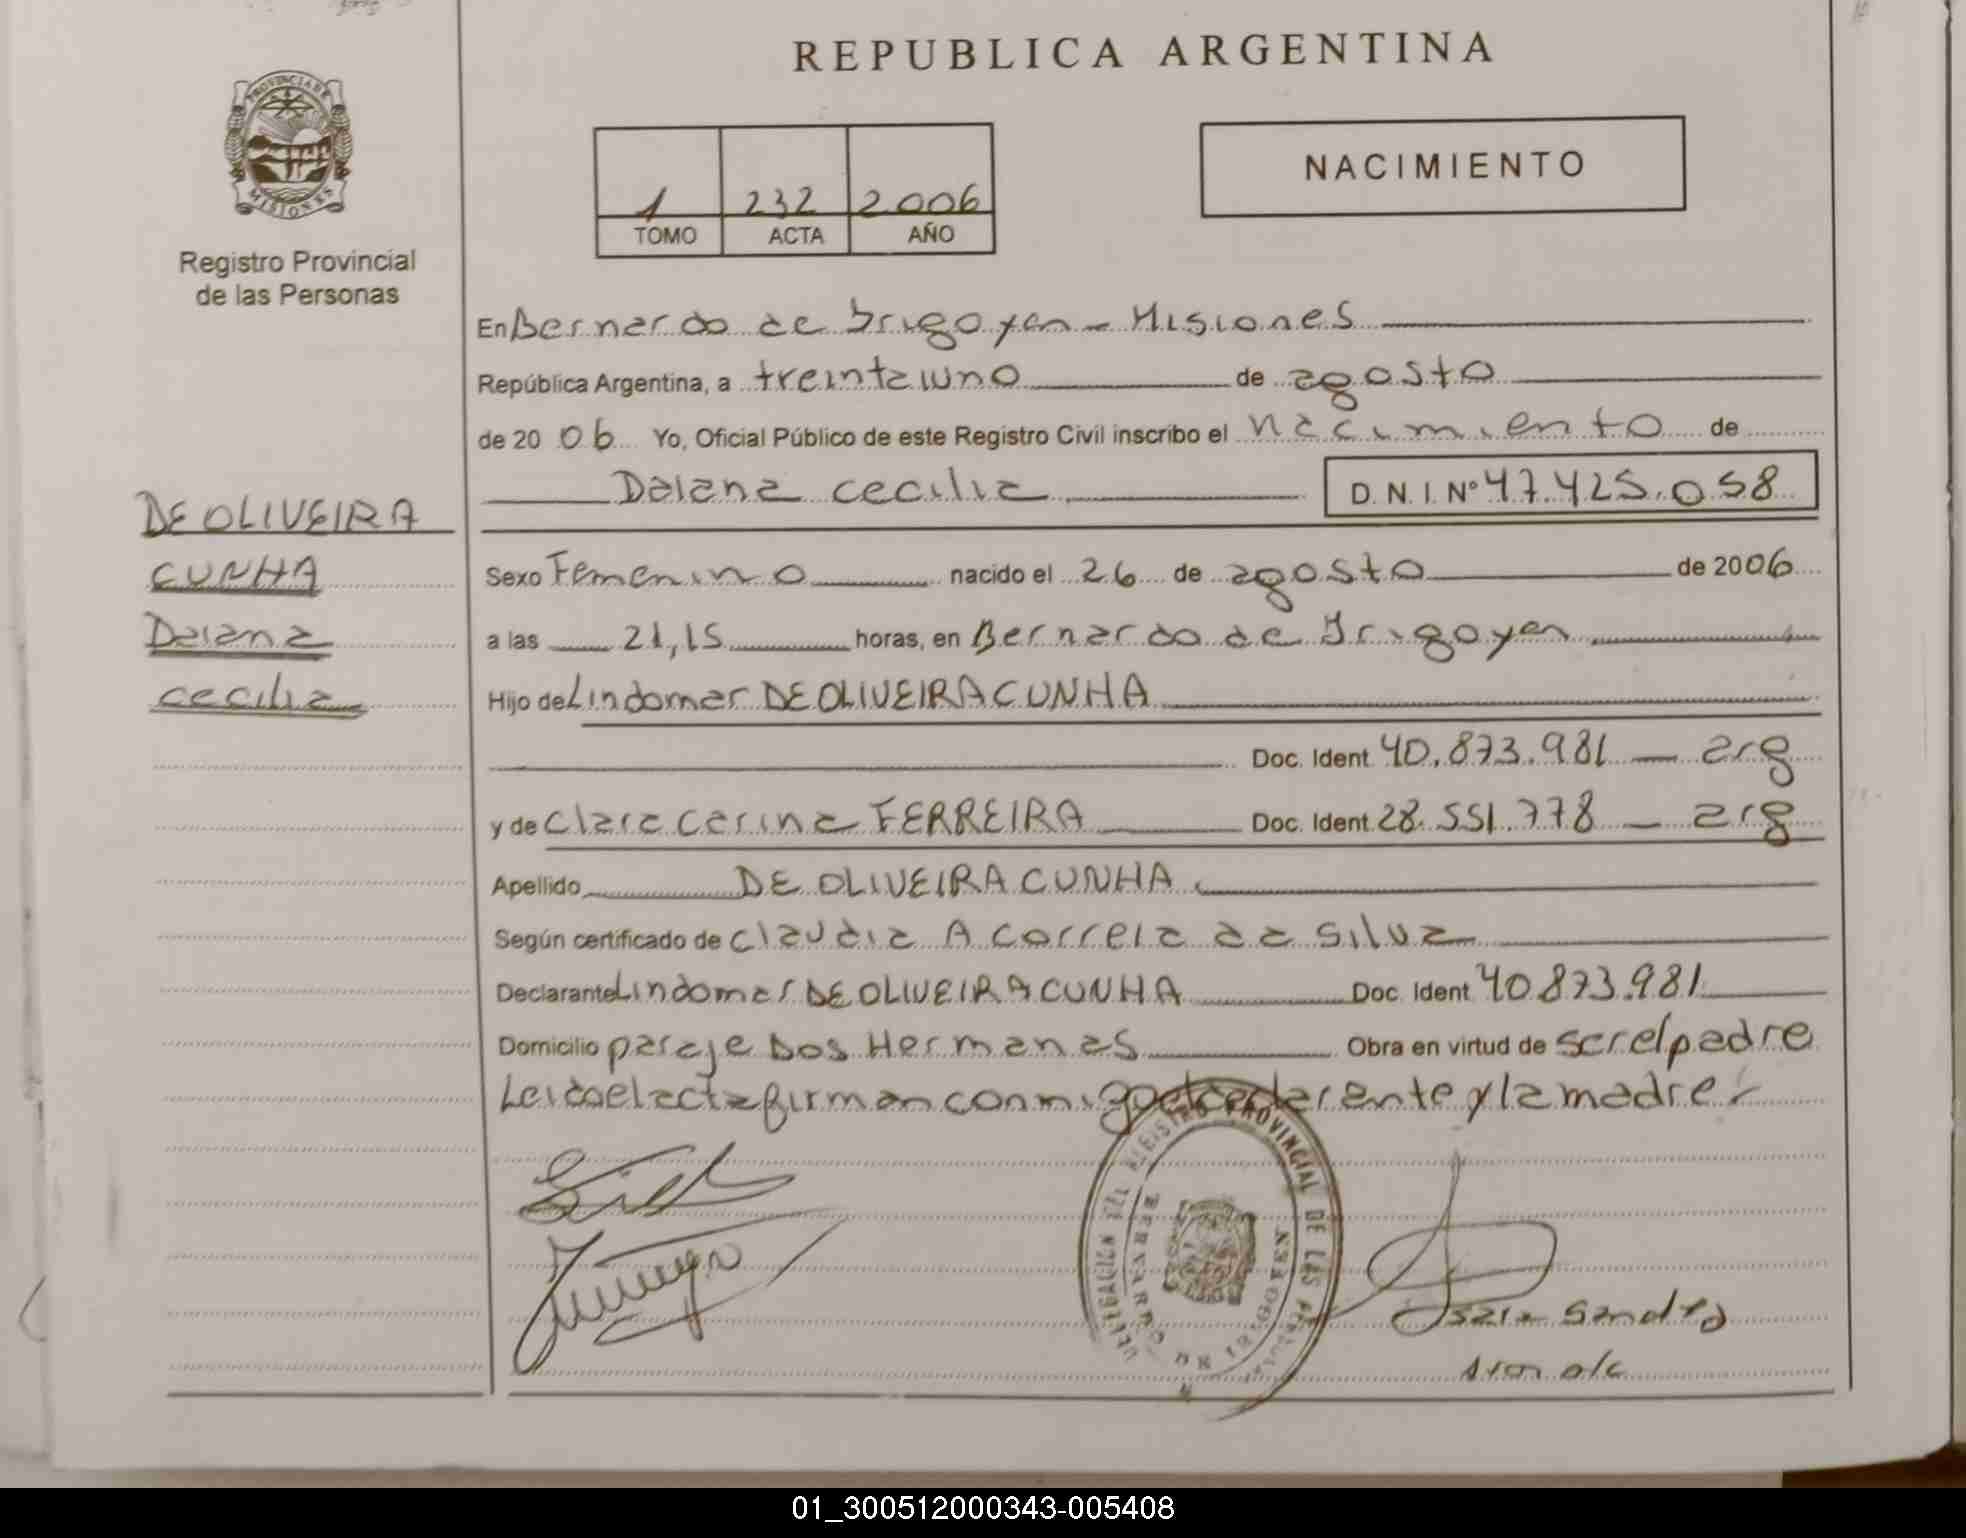 REPUBLICA ARGENTINA
PROVINCIA DE
MISIONES
Registro Provincial
de las Personas
1 232 2006
TOMO ACTA AÑO
NACIMIENTO
En Bernardo de Irigoyen - Misiones
República Argentina, a treintaiuno de agosto
de 2006 Yo, Oficial Público de este Registro Civil inscribo el nacimiento de
Daiana cecilia D.N.I. Nº 47.425.058
DE OLIVEIRA
CUNHA
Daiana
cecilia
Sexo Femenino nacido el 26 de agosto de 2006
a las 21,15 horas, en Bernardo de Irigoyen
Hijo de Lindomar DE OLIVEIRA CUNHA
Doc. Ident 40.873.981 - arg
y de Clara Carina FERREIRA Doc. Ident. 28.551.778 - arg
Apellido DE OLIVEIRA CUNHA
Según certificado de Claudia A Correia da Silva
Declarante Lindomar DE OLIVEIRA CUNHA Doc. Ident 40.873.981
Domicilio paraje Dos Hermanas Obra en virtud de ser el padre
Leida el acta firman conmigo el declarante y la madre
DELEGACION DEL REGISTRO PROVINCIAL DE LAS PERSONAS
BERNARDO DE IRIGOYEN
01_300512000343-005408